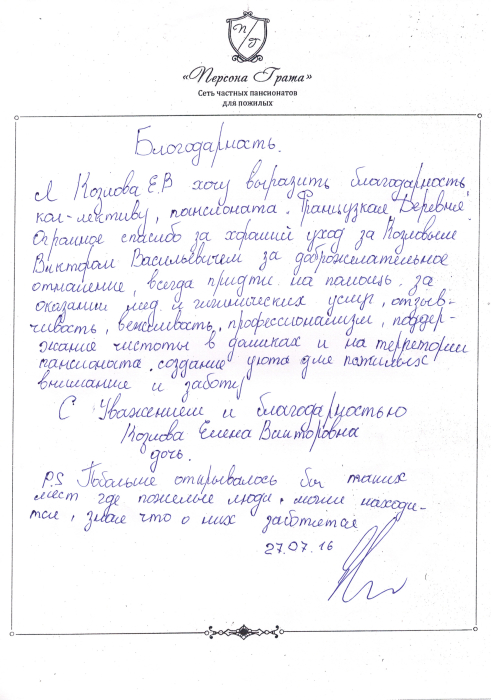 П Г
«Персона Грата»
Сеть частных пансионатов
для пожилых
Благодарность.
Я Козлова ЕВ хочу выразить благодарность
кол-лективу, пансионата "Французкая Деревня"
Огромное спасибо за хороший уход за Козловым
Виктором Васильевичем за доброжелательное
отношение, всегда придти на помощь. за
оказании мед и гигиенических услуг, отзыв-
чивасть, вежливасть, профессионализм, поддер-
жание чистоты в домиках и на терретории
пансионата, создание уюта для пожилых
внимание и заботу
С Уважением и благодарностью
Козлова Елена Викторовна
дочь.
P.S Побольше открывалось бы таких
мест где пожилые люди, могли находи-
тся, зная что о них заботятся
27.07.16